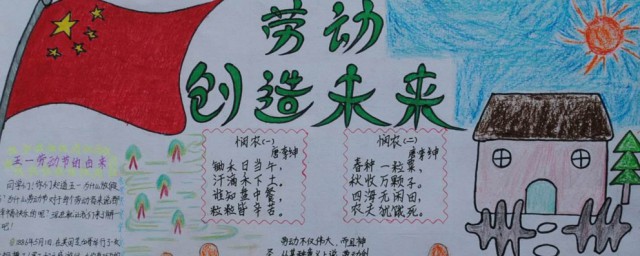 劳动
创造未来
五一劳动节的由来
同学们！你们知道五一为什么放假
为什么劳动节对于每个劳动者来说都
吧！
悯农（一）
唐李绅
锄禾日当午，
汗滴禾下土。
谁知盘中餐，
粒粒皆辛苦。
悯农（二）
唐李绅
春种一粒粟，
秋收万颗子。
四海无闲田，
农夫犹饿死。
年5月1日，在美国
劳动不仅伟大、而且神